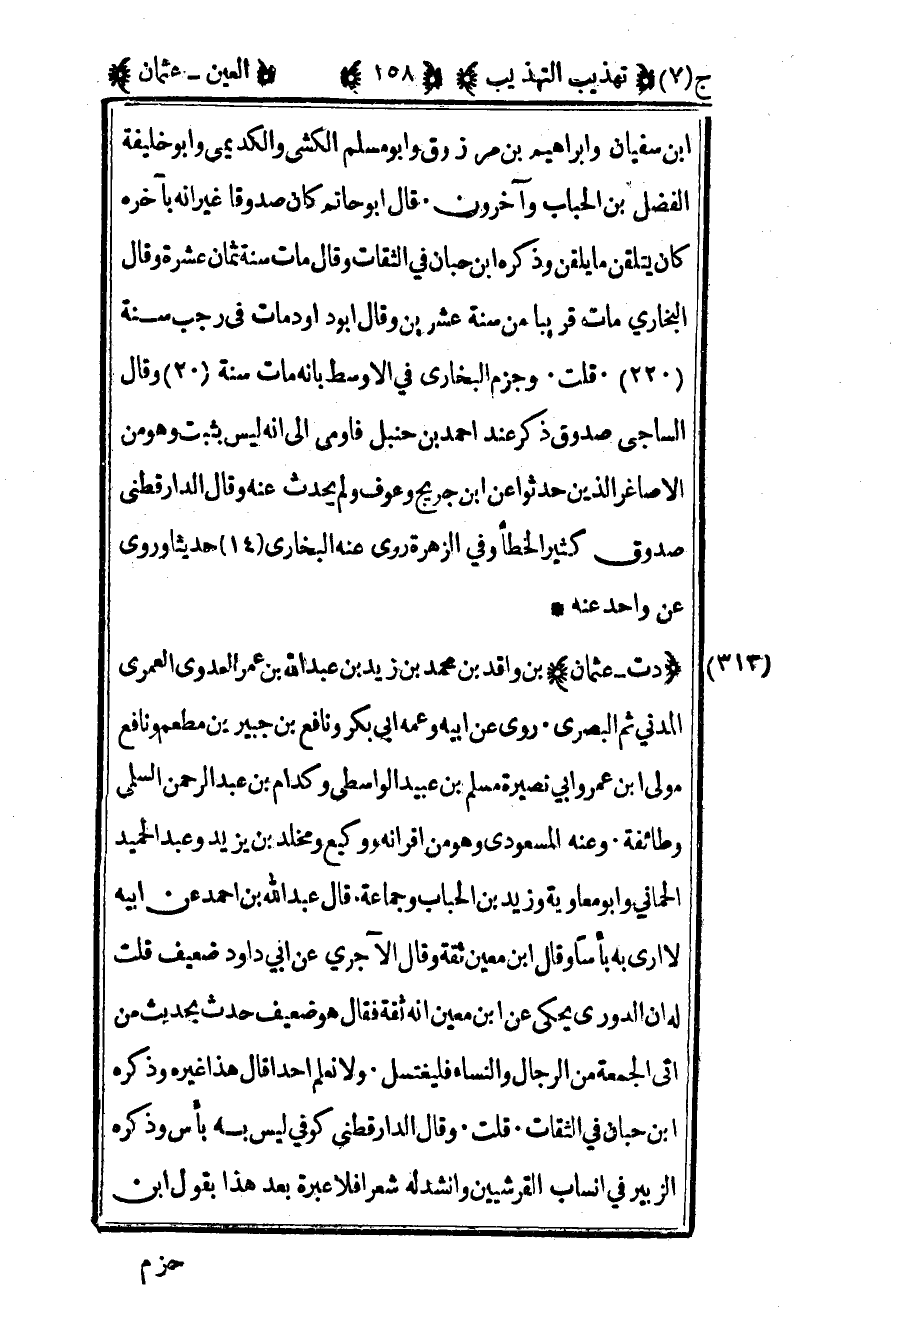 ج(٧) ﴿ تهذيب التهذيب ﴾ ﴿ ١٥٨ ﴾ ﴿ العين ـ عثمان ﴾
ابن سفيان وابراهيم بن مرزوق وابومسلم الكشى والكديمى وابوخليفة
الفضل بن الحباب وآخرون . قال ابوحاتم كان صدوقا غير انه بآخره
كان يتلقن ما يلقن وذكره ابن حبان في الثقات وقال مات سنة ثمان عشرة وقال
البخاري مات قريبا من سنة عشرين وقال ابوداود مات فى رجب سنة
(٢٢٠) . قلت . وجزم البخارى في الاوسط بانه مات سنة (٢٠) وقال
الساجى صدوق ذكر عند احمد بن حنبل فاومى الى انه ليس بثبت وهو من
الاصاغر الذين حدثوا عن ابن جريج وعوف ولم يحدث عنه وقال الدارقطنى
صدوق كثير الخطأ وفي الزهرة روى عنه البخارى (١٤) حديثا وروى
عن واحد عنه *
(٣١٣) ﴿ دت ـ عثمان ﴾ بن واقد بن محمد بن زيد بن عبدالله بن عمر العدوى العمرى
المدني ثم البصرى . روى عن ابيه وعمه ابي بكر ونافع بن جبير بن مطعم ونافع
مولى ابن عمر وابي نصيرة مسلم بن عبيد الواسطى وكدام بن عبد الرحمن السلمى
وطائفة . وعنه المسعودى وهو من اقرانه ووكيع ومخلد بن يزيد وعبد الحميد
الحمانى وابومعاوية وزيد بن الحباب وجماعة . قال عبدالله بن احمد عن ابيه
لا ارى به بأسا وقال ابن معين ثقة وقال الآجري عن ابي داود ضعيف قلت
له ان الدورى يحكى عن ابن معين انه ثقة فقال هو ضعيف حدث بحديث من
اتى الجمعة من الرجال والنساء فليغتسل . ولا نعلم احدا قال هذا غيره وذكره
ابن حبان في الثقات . قلت . وقال الدارقطني كوفي ليس به بأس وذكره
الزبير في انساب القرشيين وانشد له شعرا فلا عبرة بعد هذا بقول ابن
حزم